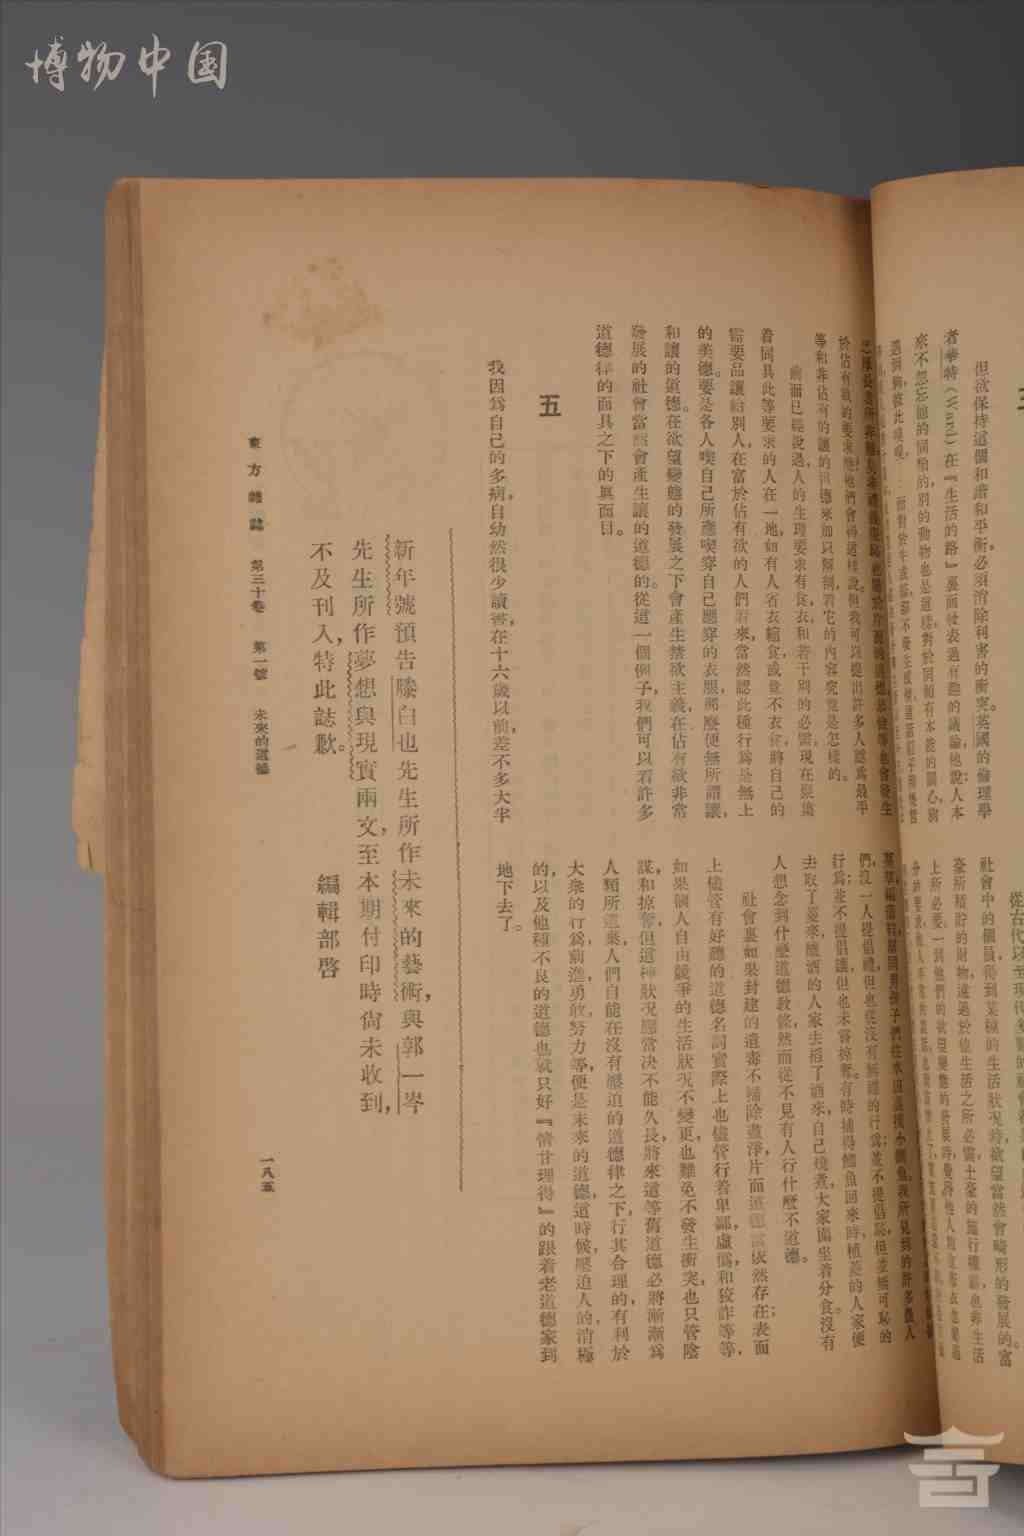 博物中国
五
但欲保持這個和諧和平衡，必須消除利害的衝突。英國的倫理學
者華特（Ward）在『生活的路』裏面發表過有趣的議論，他說：人本
的同類的，別的動物也是這樣，對於同類有本能的關心，狗
遇到狗彼此嗅嗅
於佔有欲的要求罷！他們會得這樣說。但我可以提出許多人認爲最平
等和非佔有的讓的道德來加以解剖，看它的內容究竟是怎樣的。
前面已經說過，人的生理要求有食衣和若干別的必需，現在
着同具此等要求的人在一地，如有人省衣縮食，或竟不衣食，將自己的
需要品讓給別人，在富於佔有欲的人們看來，當然認此種行爲是無上
的美德。要是各人喫自己所應喫，穿自己應穿的衣服，那麼便無所謂讓，
和讓的道德。在欲望變態的發展之下會產生禁欲主義，在佔有欲非常
發展的社會當然會產生讓的道德的。從這一個例子，我們可以看許多
道德律的面具之下的眞面目。
五
我因爲自己的多病，自幼然很少讀書，在十六歲以前，差不多大半
從古代以至現代
社會中的個員得到某種的生活狀況時，欲望當然會畸形的發展的。富
豪所積貯的財物，遠過於他生活之所必需，土豪的施行權
上所必要。一到他們的欲望變態的發展時
們，沒一人提倡禮，但也從沒有無禮的行爲；並不提倡恥，但並無可恥的
行爲；並不提倡讓，但也未嘗掠奪。有時捕得鱔魚回來時，植菱的人家便
去取了菱來，釀酒的人家去搯了酒來，自己燒煮，大家圍坐着分食。沒有
人想念到什麼道德教條，然而從不見有人行什麼不道德。
社會裏如果封建的遺毒不掃除盡淨，片面道德當依然存在；表面
上儘管有好聽的道德名詞，實際上也儘管行着卑鄙，虛僞，和狡詐等等，
如果個人自由競爭的生活狀況不變更，也難免不發生衝突，也只管陰
謀和掠奪，但這種狀況應當決不能久長，將來道等舊道德必將漸漸爲
人類所遺棄，人們自能在沒有壓迫的道德律之下，行其合理的，有利於
大衆的行爲，前進，勇敢，努力等，便是未來的道德，這時候，壓迫人的，消極
的，以及他種不良的道德也就只好『情甘理得』的跟着老道德家到
地下去了。
新年號預告滕白也先生所作未來的藝術，與郭一岑
先生所作夢想與現實兩文，至本期付印時尙未收到，
不及刊入，特此誌歉。
編輯部啓
東方雜誌　第三十卷　第一號　未來的道德
一八五